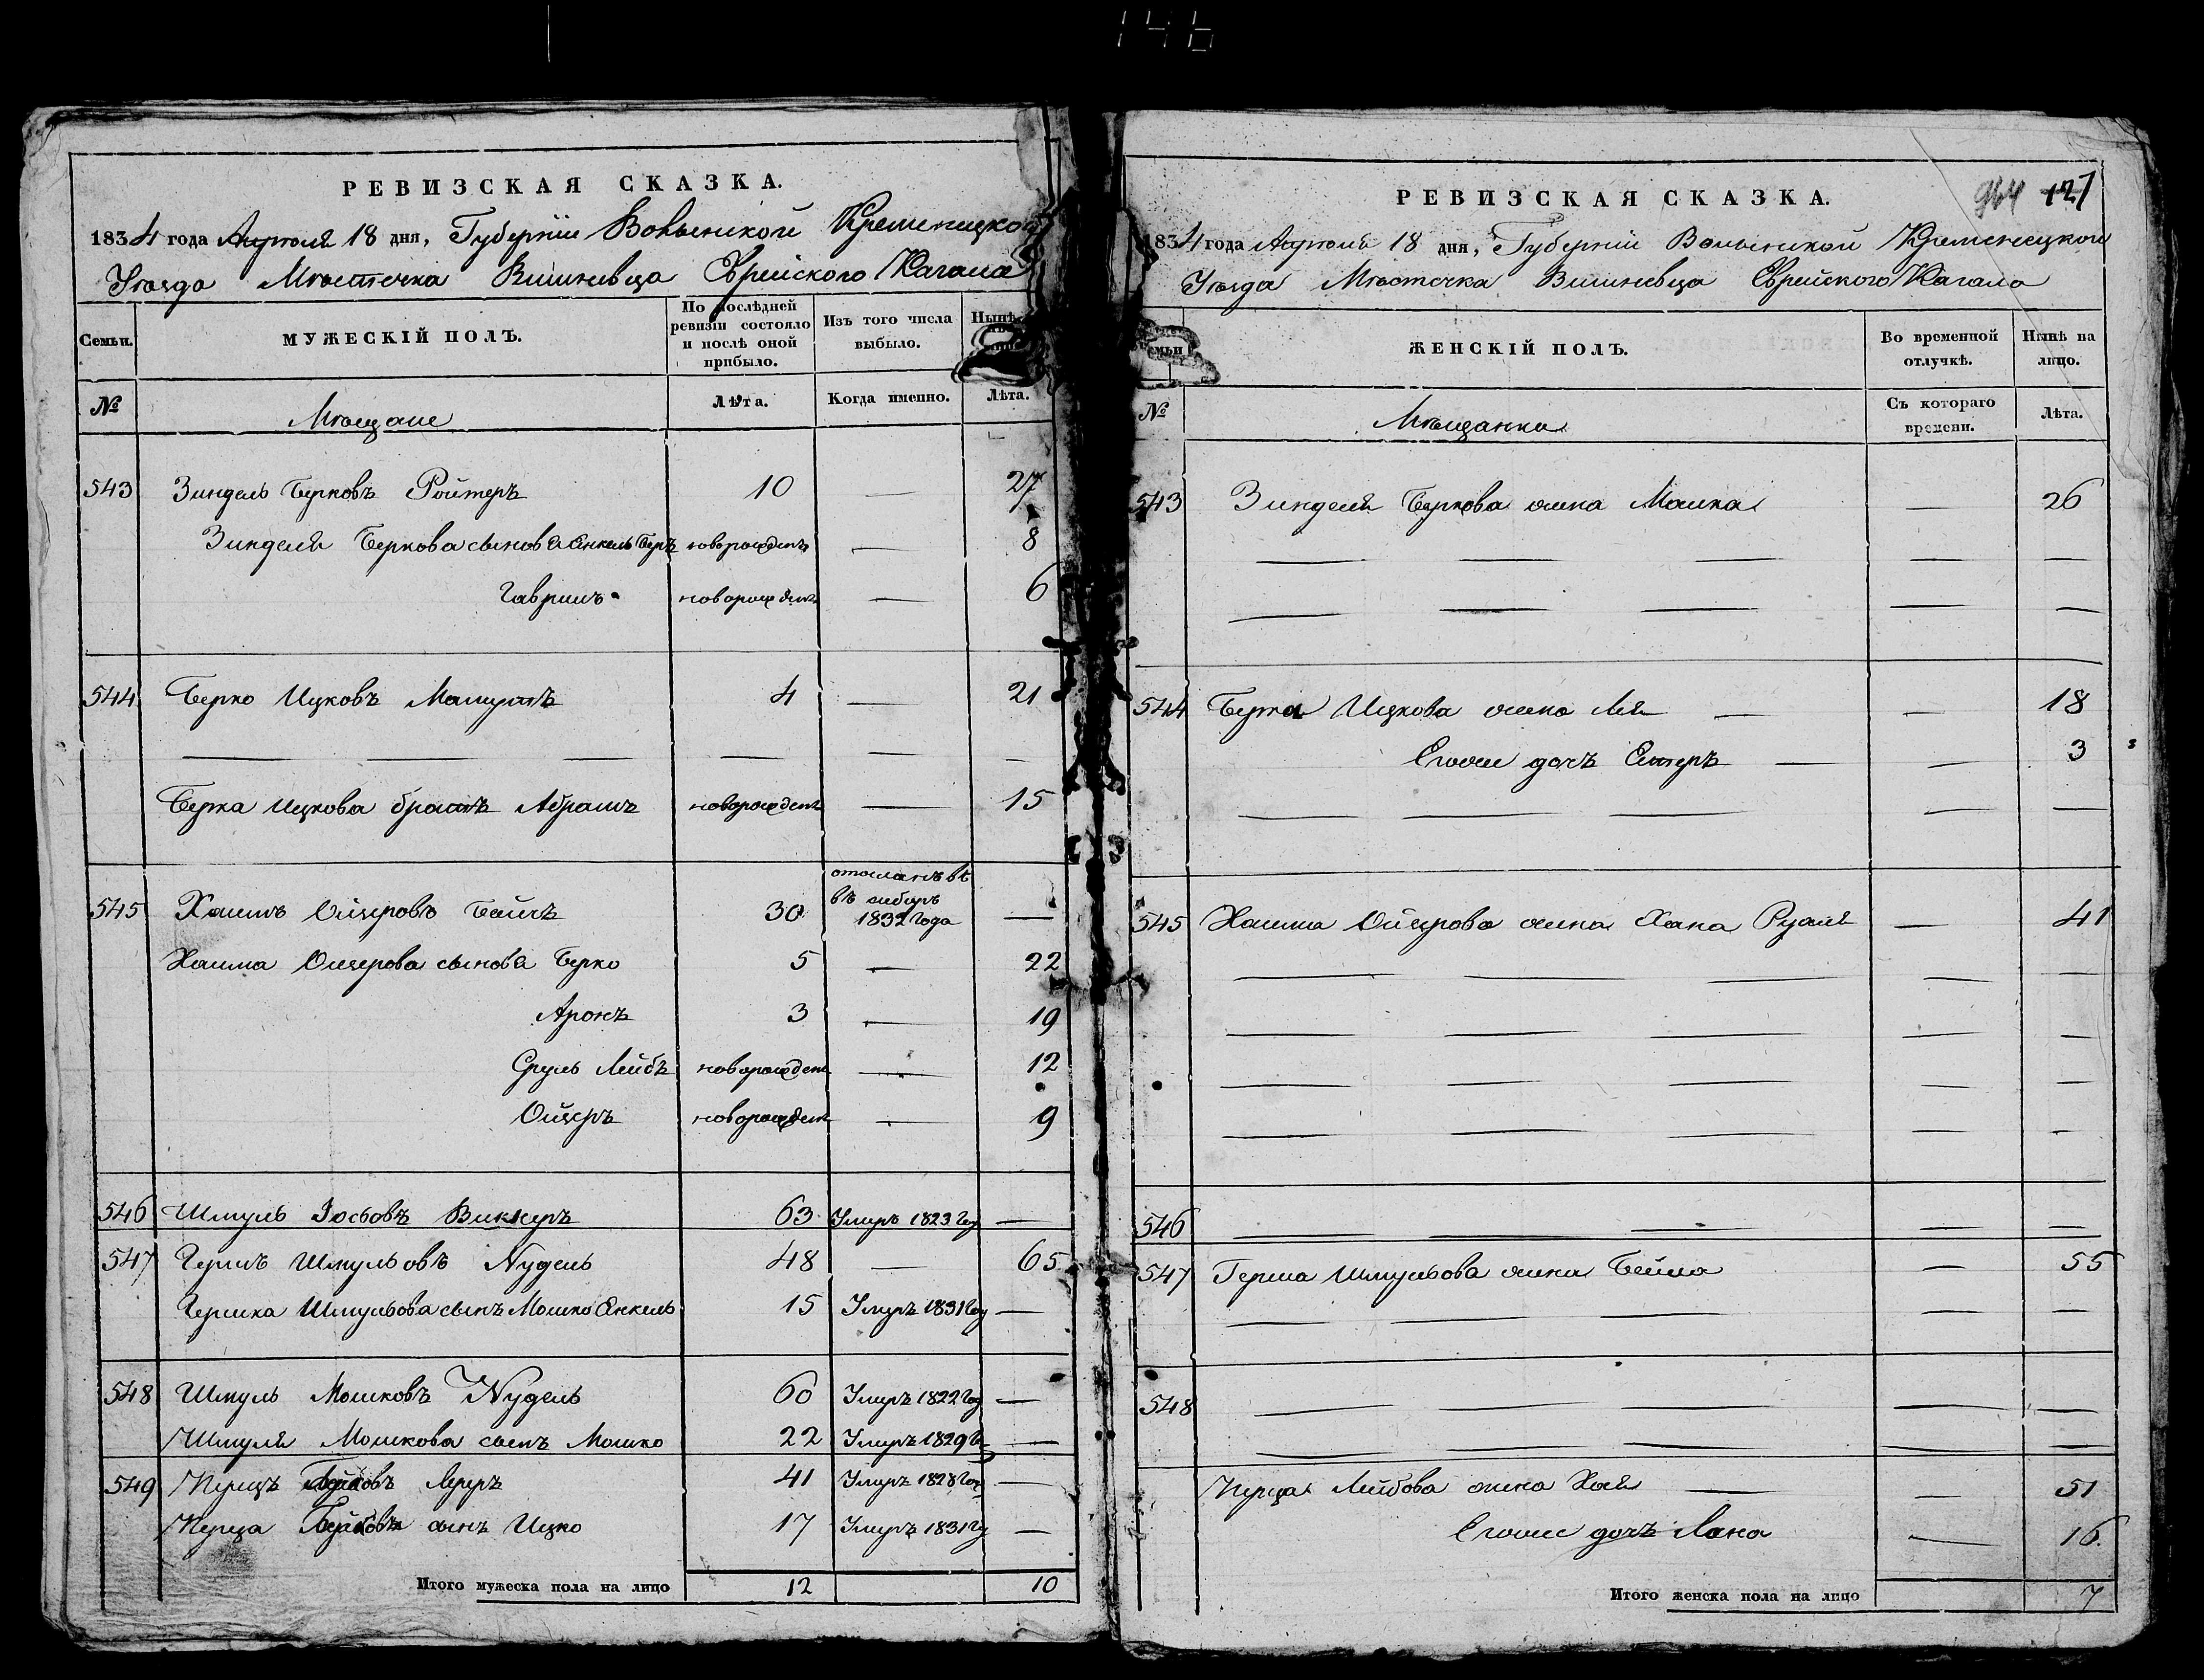 146
РЕВИЗСКАЯ СКАЗКА.
1834 года Апреля 18 дня, Губерніи Волынской Кременецкой
Уѣзда Мѣстечка Вишневца Еврейского Кагала
Семьи.
МУЖЕСКІЙ ПОЛЪ.
По послѣдней ревизіи состояло и послѣ оной прибыло.
Изъ того числа выбыло.
Нынѣ
№
Мѣщане
Лѣта.
Когда именно.
Лѣта.
543 Зиндель Берковъ Ройтеръ 10 — 27
Зинделя Беркова сынова Енкель Беръ новорожденъ — 8
Гаврилъ новорожден — 6
544 Берко Ицковъ 4 — 21
— — — — — —
Берка Ицкова братъ Абрамъ новорожденъ — 15
545 Хаимъ Ойзеровъ 30 отосланъ въ
въ сибирь
1832 года —
Хаима Ойзерова сынова Берко 5 — 22
Аронъ 3 — 19
Сруль Лейбъ новорожден — 12
Ойзеръ новорожден — 9
546 Шмуль Іосьовъ 63 Умеръ 1823 Год —
547 Гершъ Шмульовъ Нудель 48 — 65
Гершка Шмульова сынъ Мошко Енкель 15 Умеръ 1831 Году —
548 Шмуль Мошковъ Нудель 60 Умеръ 1822 Год —
Шмуля Мошкова сынъ Мошко 22 Умеръ 1829 Г —
549 Перецъ Лейбовъ 41 Умеръ 1828 Год —
Перца Лейбова сынъ Ицко 17 Умеръ 1831 Г —
Итого мужеска пола на лицо 12 10
РЕВИЗСКАЯ СКАЗКА.
964 127
1834 года Апреля 18 дня, Губерніи Волынской Кременецкой
Уѣзда Мѣстечка Вишневца Еврейского Кагала
ЖЕНСКІЙ ПОЛЪ.
Во временной отлучкѣ.
Нынѣ на лицо.
№
Мѣщанки
Съ котораго времени.
Лѣта.
543 Зинделя Беркова жена Малка — 26
— — — — —
— — — — —
544 Берка Ицкова жена Лея — — 18
Егоже дочь Естеръ — — 3
— — — — —
545 Хаима Ойзерова жена Хана Рухля — 41
— — — — —
— — — — —
— — — — —
— — — — —
546 — — — — —
547 Герша Шмульова жена Бейла — 55
— — — — —
548 — — — — —
— — — — —
Перца Лейбова жена Хая — — 51
Егоже дочь Хана — 16
Итого женска пола на лицо 7